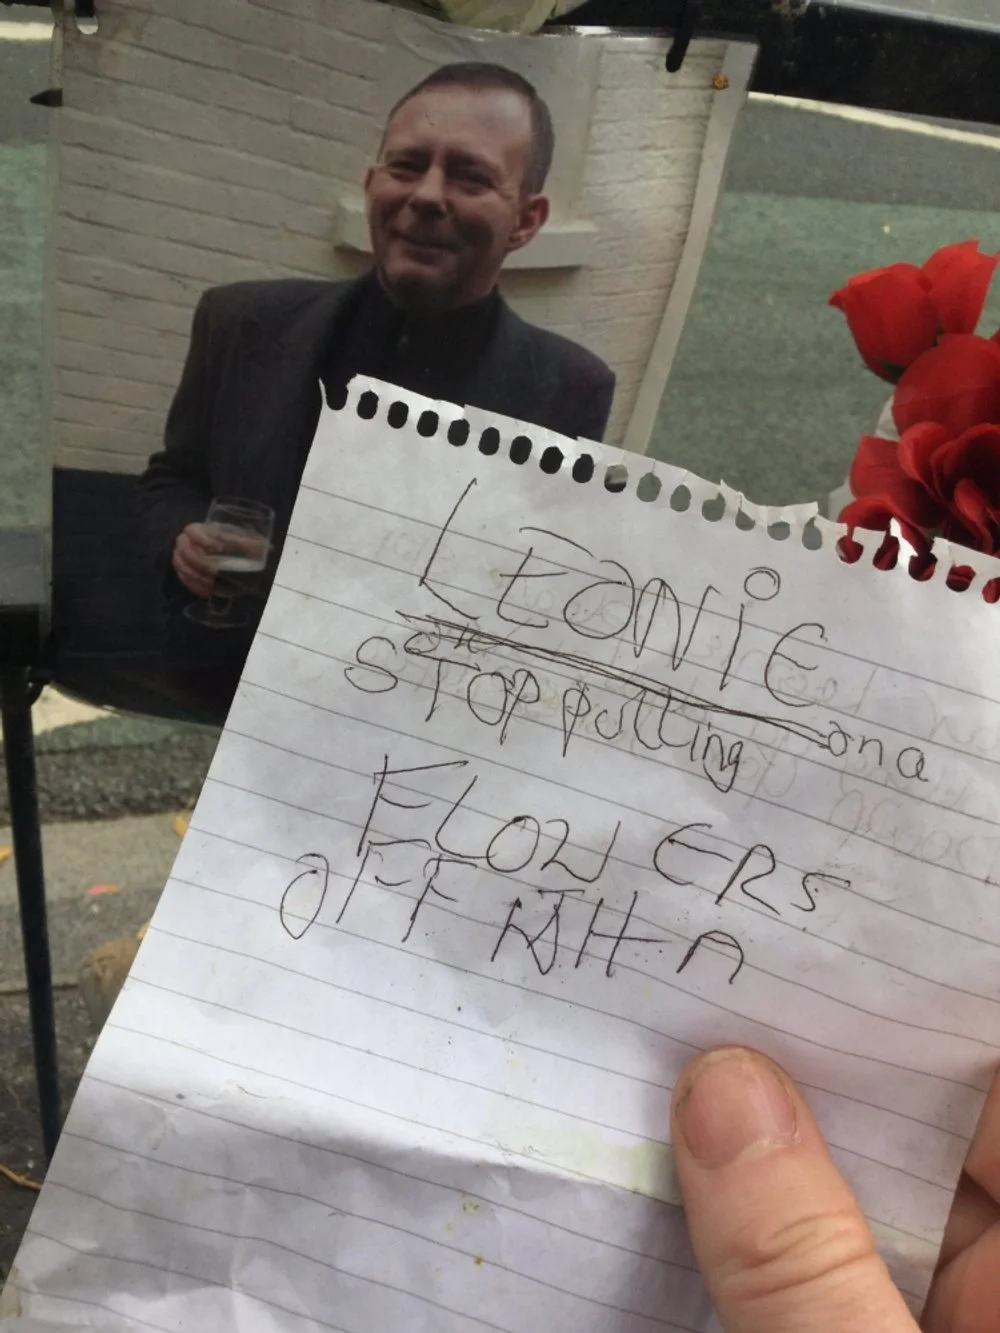 LEONiE
STOP putting on a
FLOWERS
OFF